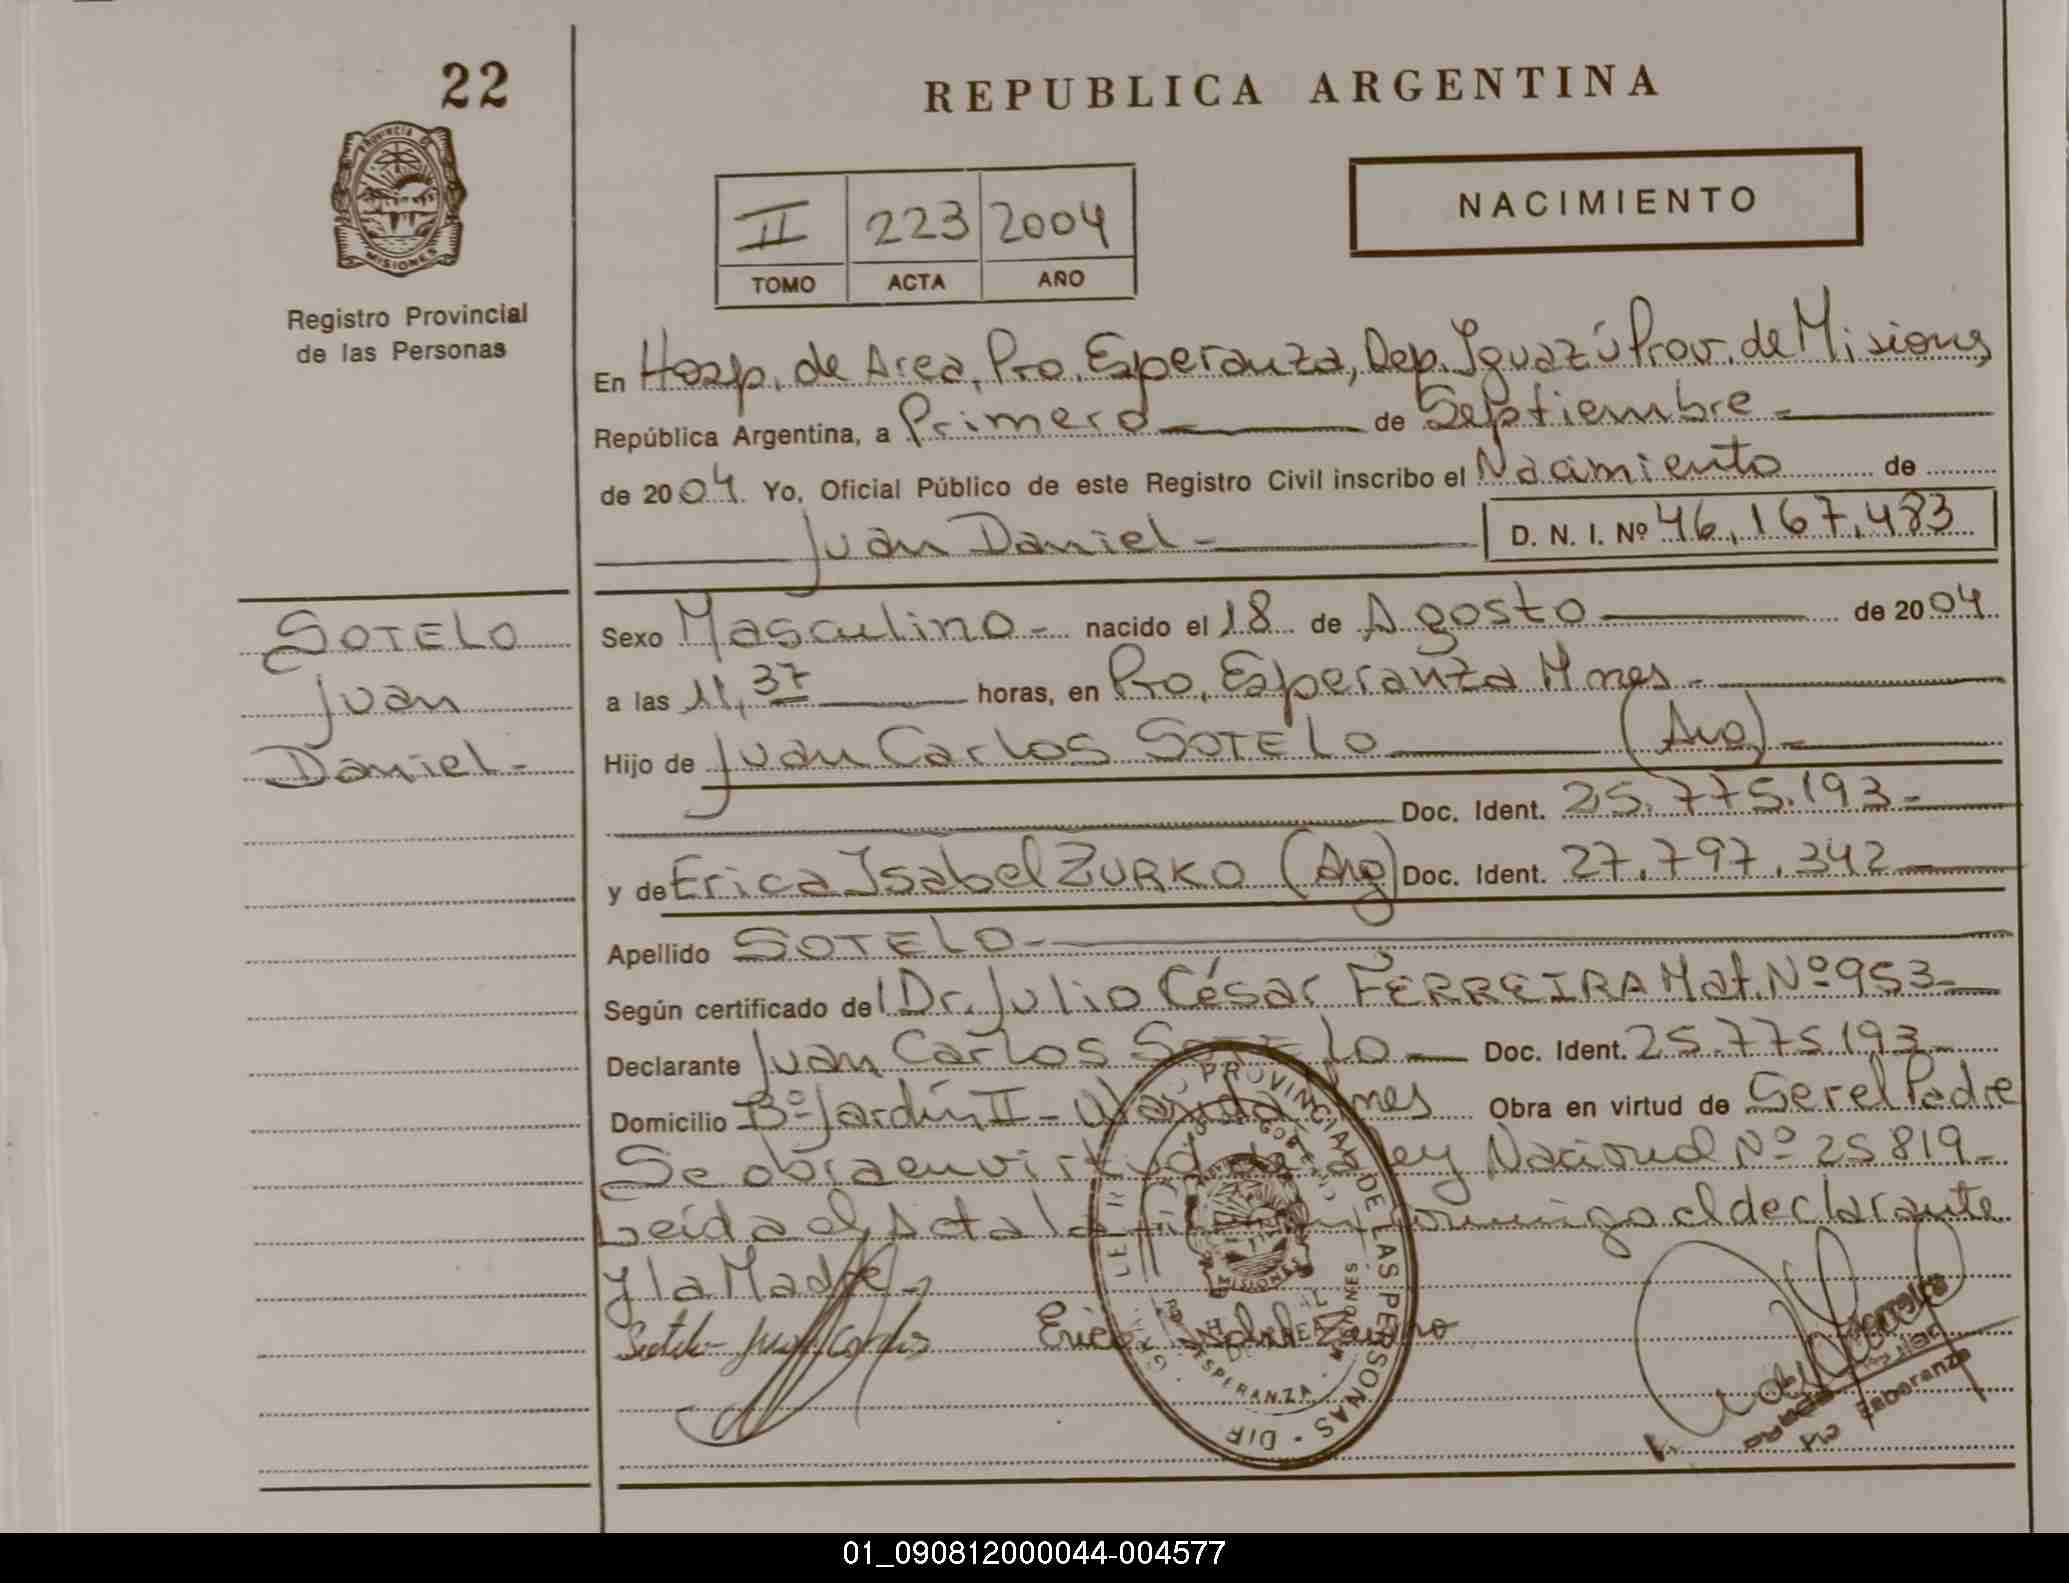 22
PROVINCIA DE
MISIONES
Registro Provincial
de las Personas
REPUBLICA ARGENTINA
NACIMIENTO
II 223 2004
TOMO ACTA AÑO
En Hosp. de Area, Pto. Esperanza, Dep. Iguazú Prov. de Misiones
República Argentina, a Primero de Septiembre
de 2004. Yo, Oficial Público de este Registro Civil inscribo el Nacimiento de
Juan Daniel D. N. I. Nº 46.167.483
SOTELO
Juan
Daniel
Sexo Masculino nacido el 18 de Agosto de 2004
a las 11,37 horas, en Pto. Esperanza Mnes
Hijo de Juan Carlos SOTELO (Arg)
Doc. Ident. 25.775.193
y de Erica Isabel ZURKO (Arg) Doc. Ident. 27.797.342
Apellido SOTELO
Según certificado del Dr. Julio César FERREIRA Mat. Nº 953
Declarante Juan Carlos SOTELO Doc. Ident. 25.775.193
Domicilio Bº Jardín II - Wanda Mnes Obra en virtud de Ser el Padre
Se obra en virtud de la Ley Nacional Nº 25819
Leída el Acta la firman conmigo el declarante
y la Madre
Sotelo Juan Carlos
Erica Isabel Zurko
PROVINCIAL DE LAS PERSONAS
MISIONES
ESPERANZA
01_090812000044-004577